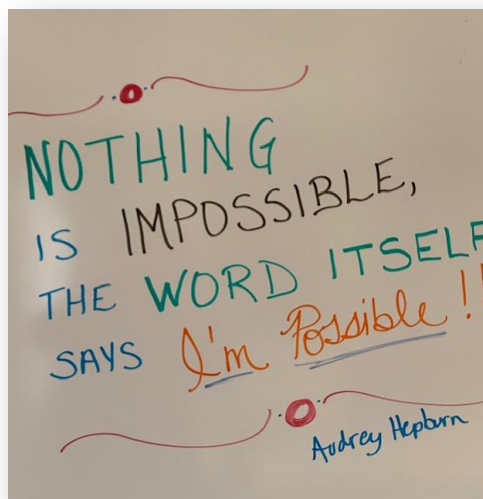 NOTHING
IS IMPOSSIBLE,
THE WORD ITSELF
SAYS I'm Possible!!
Audrey Hepburn